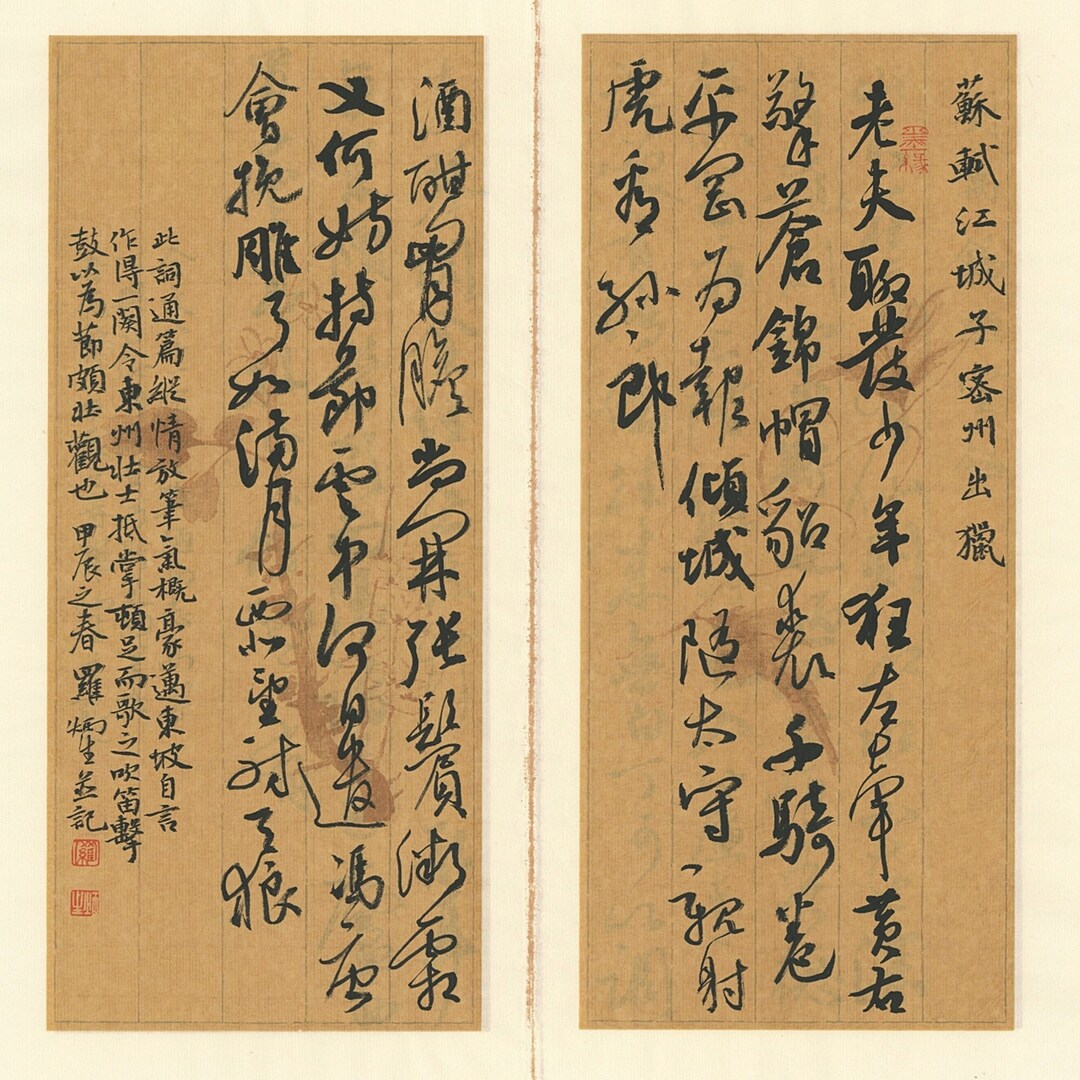 蘇軾江城子密州出獵
墨緣
老夫聊發少年狂左牽黃右
擎蒼錦帽貂裘千騎卷
平岡為報傾城隨太守親射
虎看孫郎
酒酣胷膽尚開張鬢微霜
又何妨持節雲中何日遣馮唐
會挽雕弓如滿月西北望射天狼
此詞通篇縱情放筆氣概豪邁東坡自言
作得一闋令東州壯士抵掌頓足而歌之吹笛擊
鼓以為節頗壯觀也 甲辰之春 羅炳生並記
羅
炳生